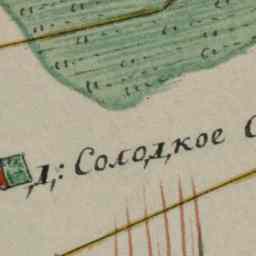 д: Солодкое